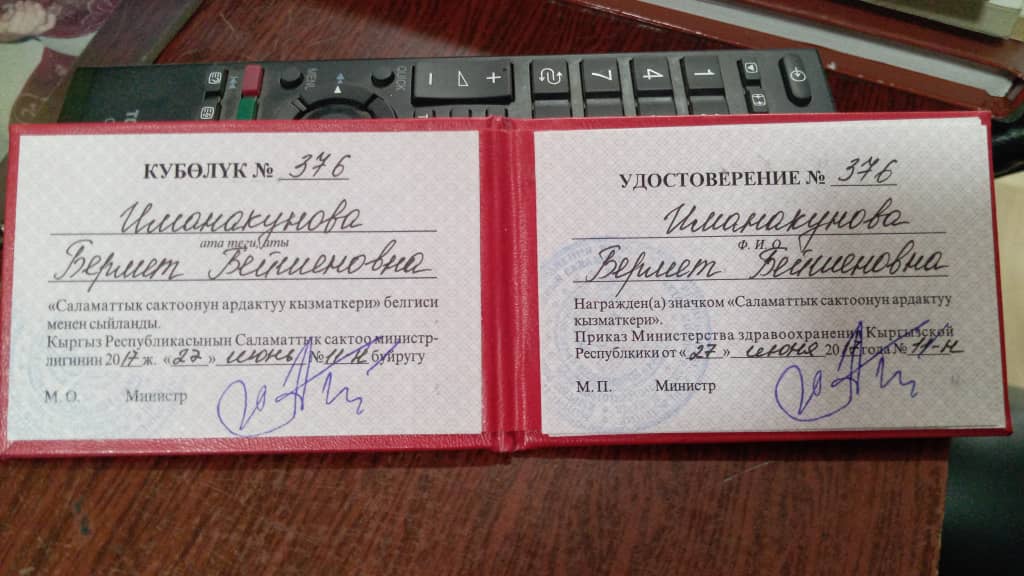 КУБӨЛҮК № 376
Иманакунова
ата теги, аты
Бермет Бейшеновна
«Саламаттык сактоонун ардактуу кызматкери» белгиси
менен сыйланды.
Кыргыз Республикасынын Саламаттык сактоо министр-
лигинин 2017 ж. «27» июнь № 11-н буйругу
М. О. Министр
УДОСТОВЕРЕНИЕ № 376
Иманакунова
Ф. И. О.
Бермет Бейшеновна
Награжден(а) значком «Саламаттык сактоонун ардактуу
кызматкери».
Приказ Министерства здравоохранения Кыргызской
Республики от «27» июня 2017 года № 11-н
М. П. Министр
MENU
QUICK
1
4
7